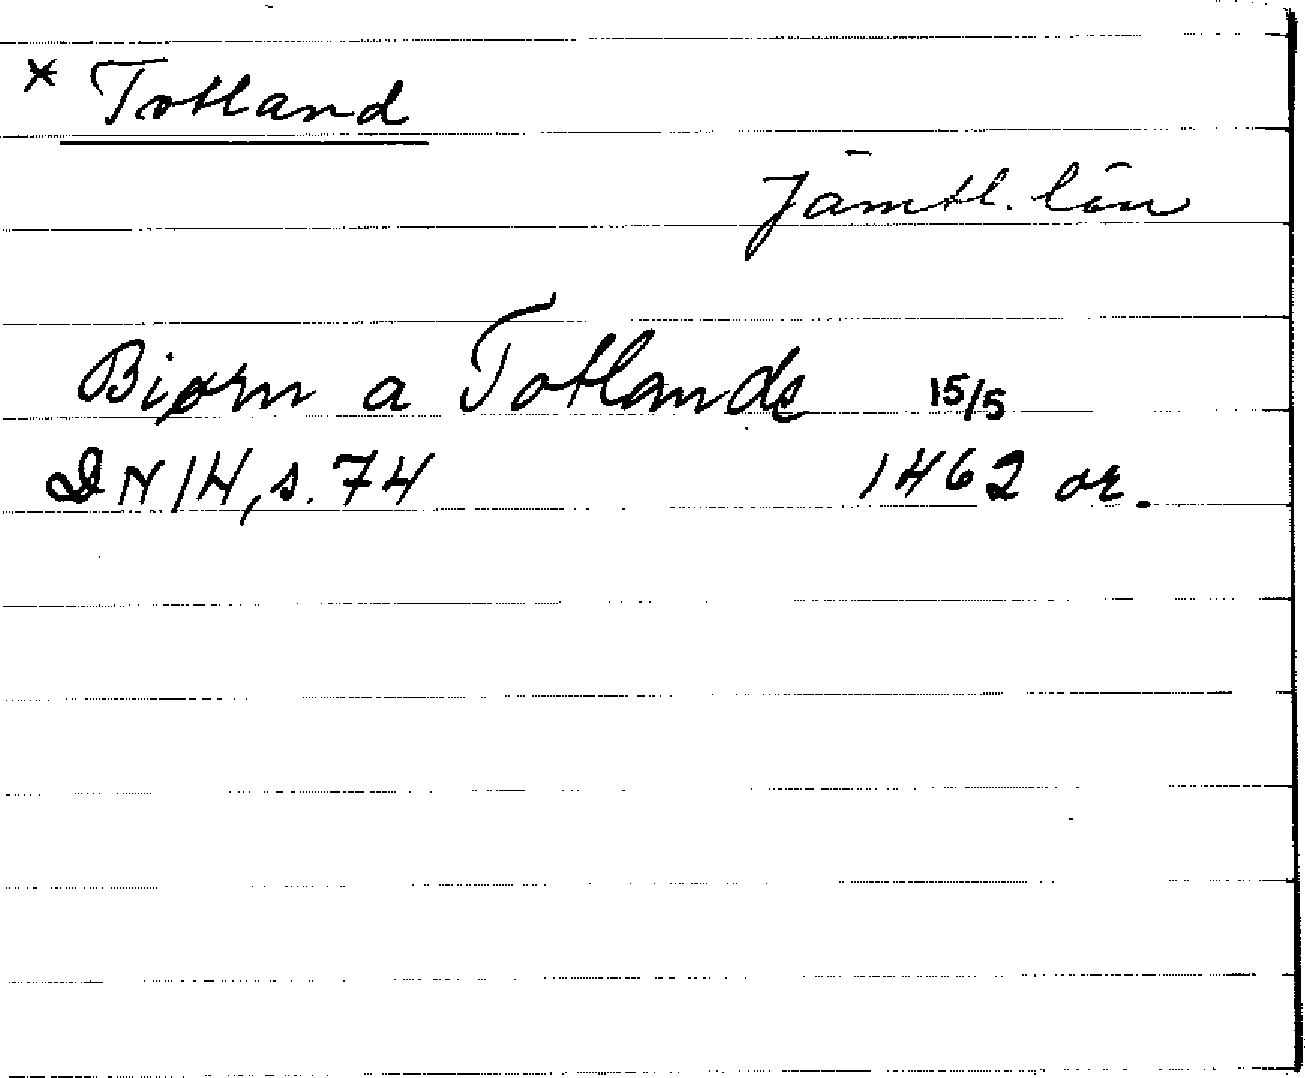 × Totland
Jämtl. län
Biørn a Totlande 15/5
DN 14, s. 74 1462 or.